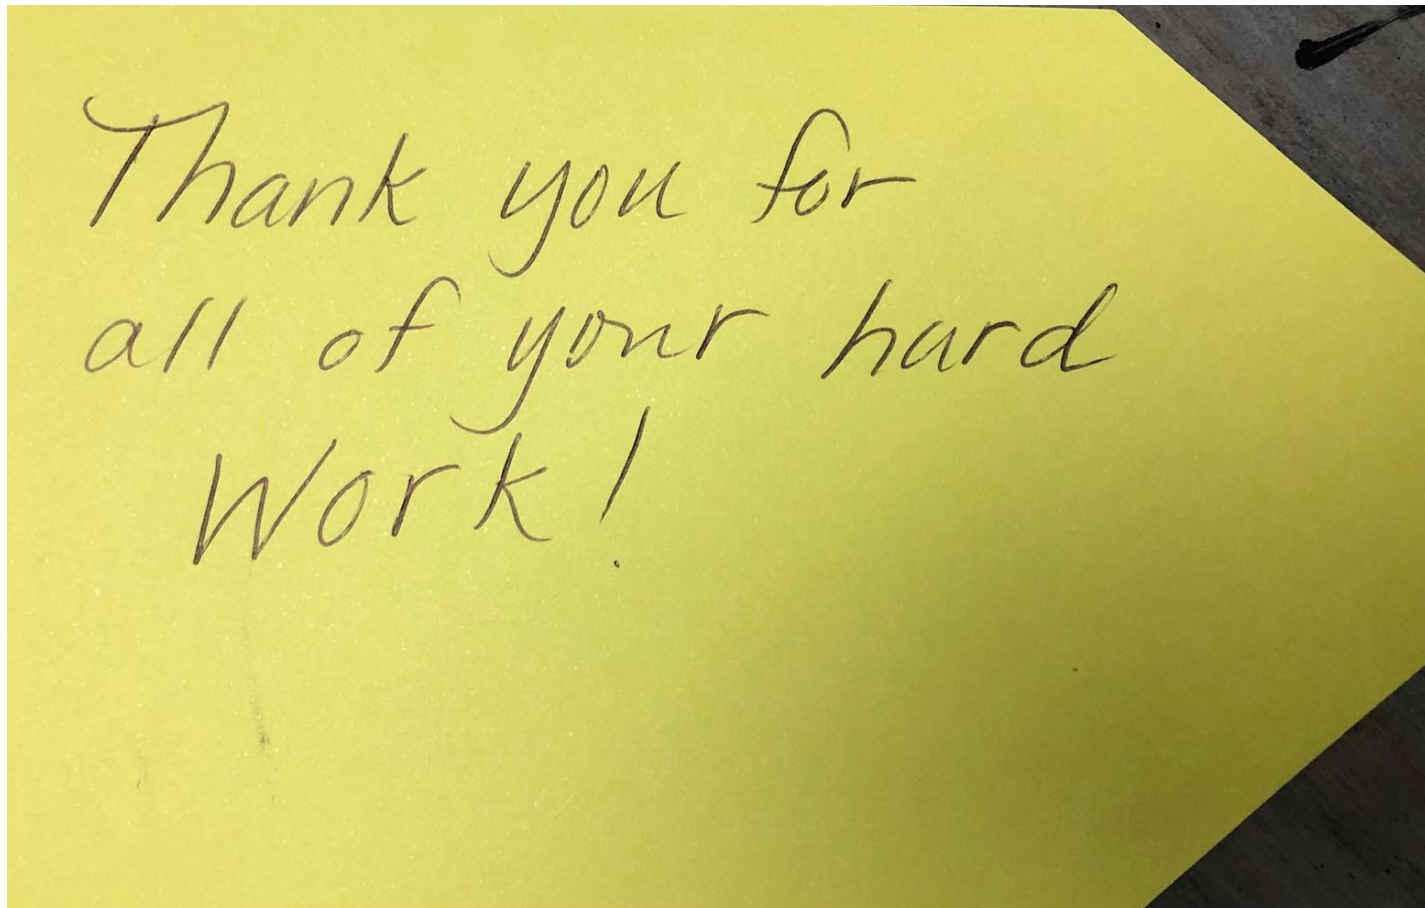 Thank you for
all of your hard
Work!